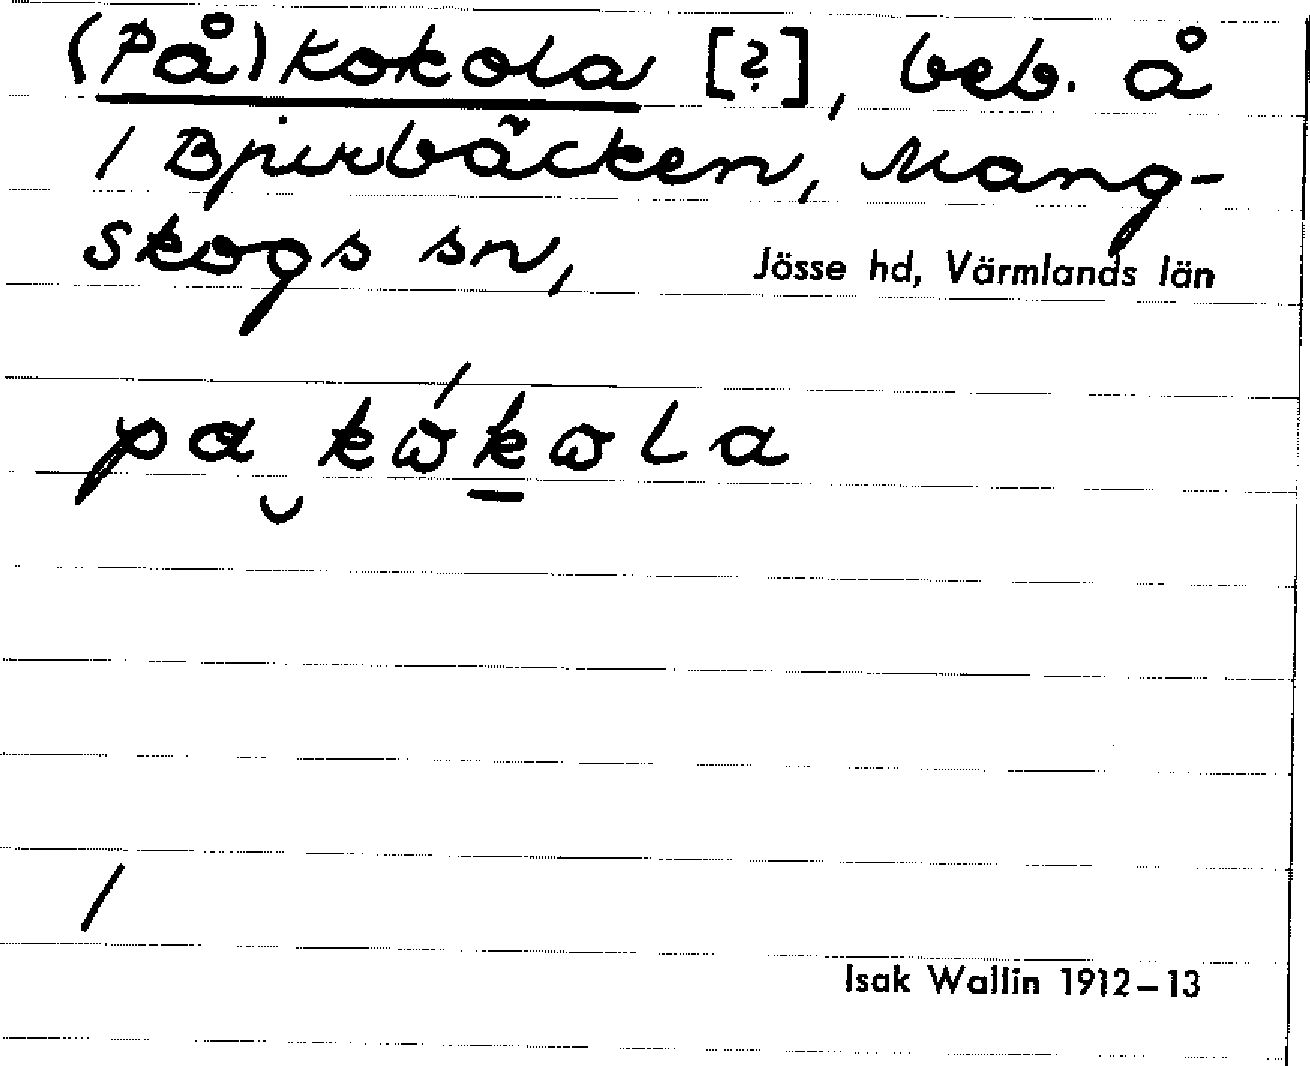 (På)Kokola [?], beb. å
1 Bjurbäcken, Mang-
skogs sn, Jösse hd, Värmlands län
pa‿kώkωla
/
Isak Wallin 1912–13